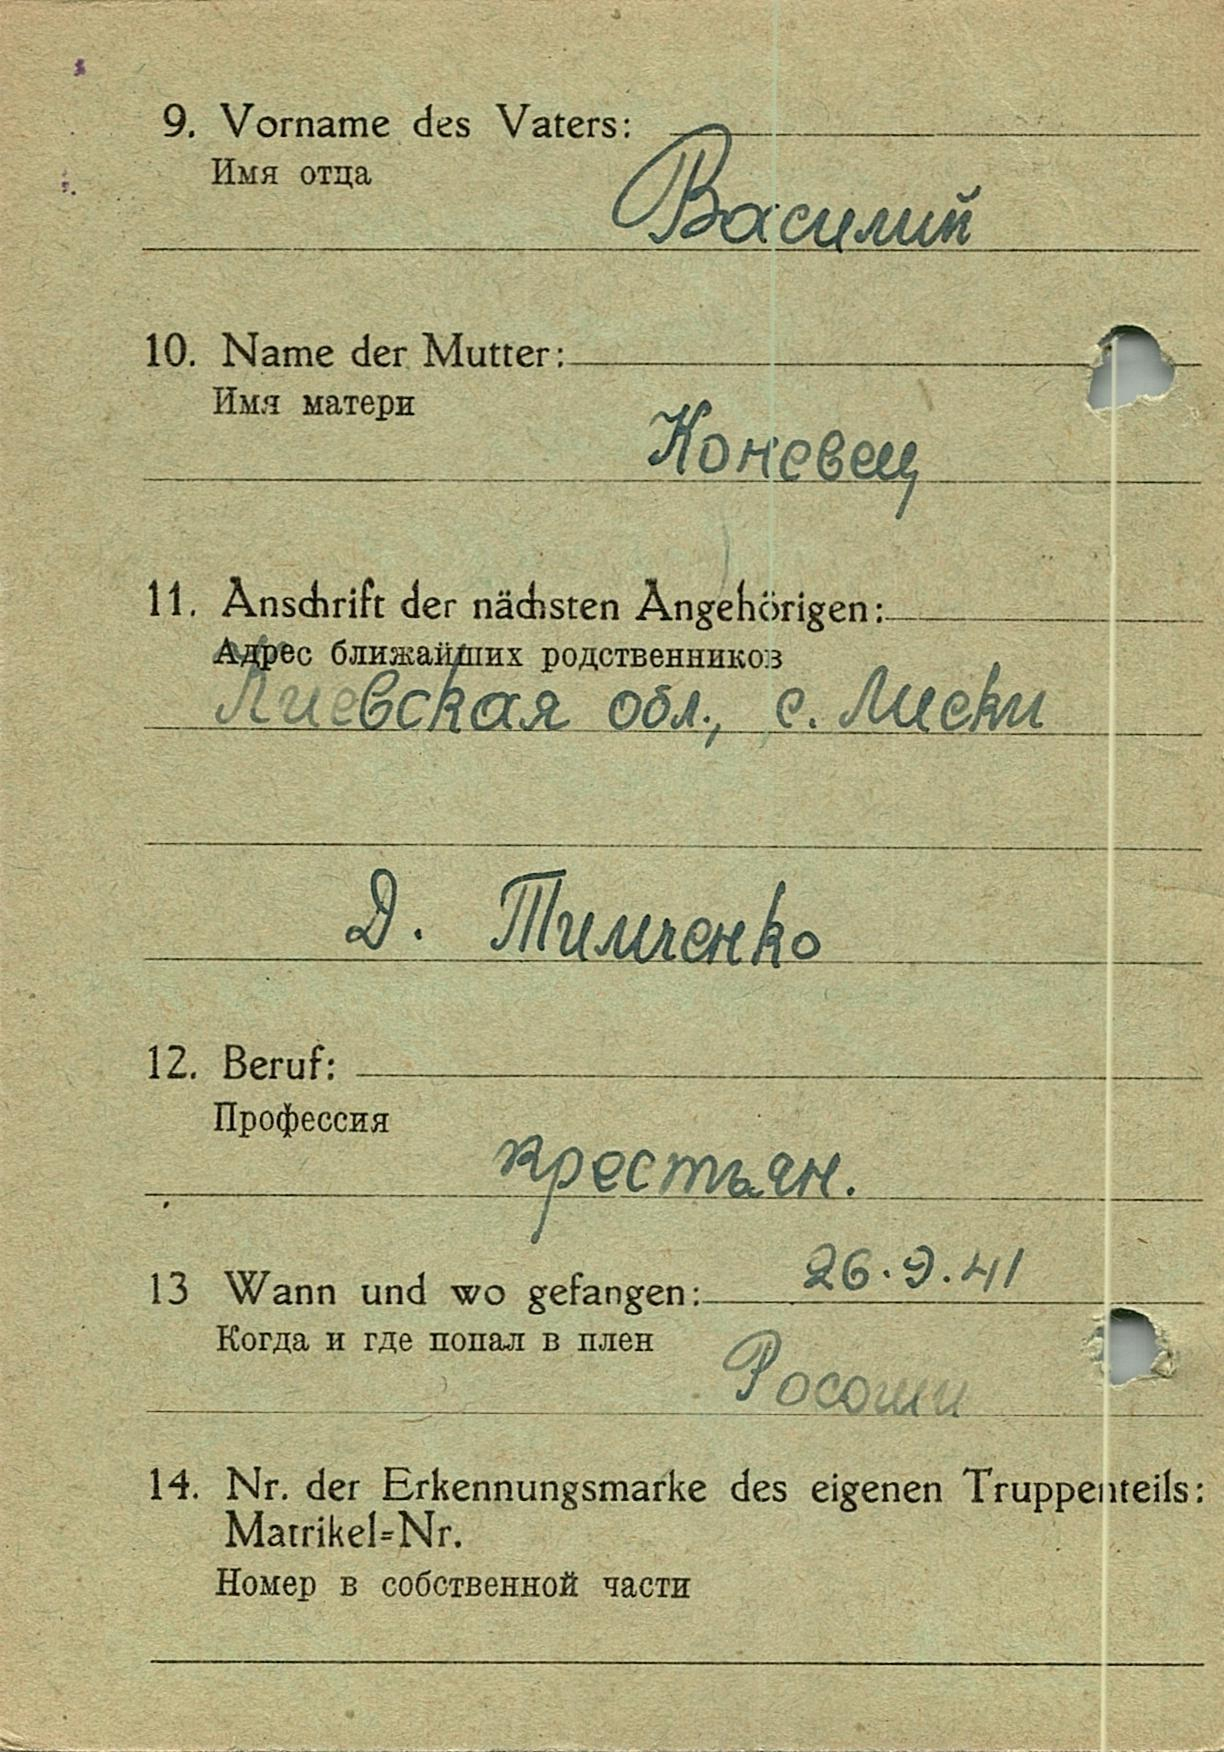 9. Vorname des Vaters:
Имя отца
Василий
10. Name der Mutter:
Имя матери
Коневец
11. Anschrift der nächsten Angehörigen:
Адрес ближайших родственников
Киевская обл., с. Лиски
Д. Тимченко
12. Beruf:
Профессия
крестьян.
13 Wann und wo gefangen: 26.9.41
Когда и где попал в плен
Росоши
14. Nr. der Erkennungsmarke des eigenen Truppenteils:
Matrikel=Nr.
Номер в собственной части